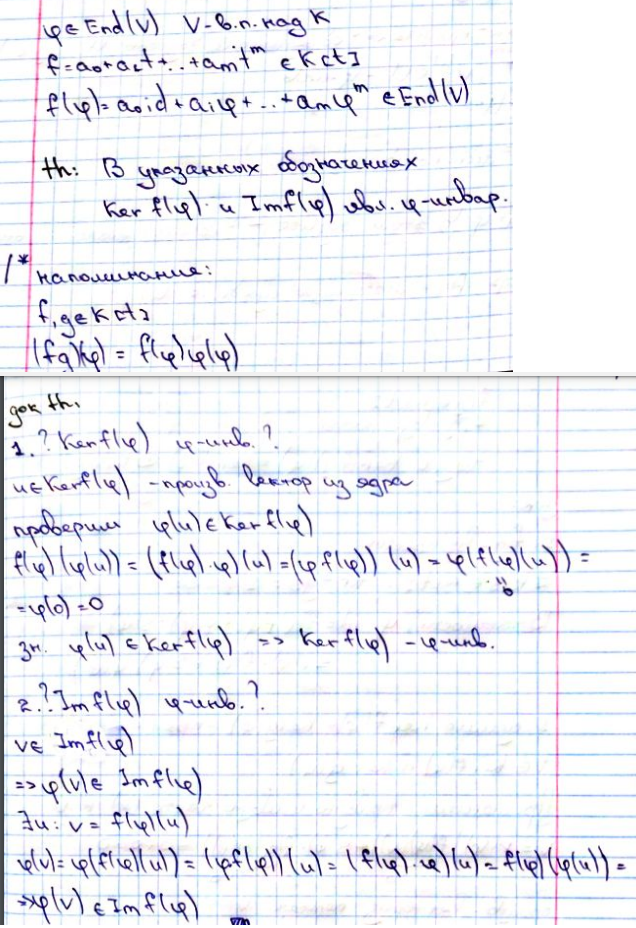 φ∈End(V) V-в.п. над K
f=a₀+a₁t+..+aₘtᵐ ∈K[t]
f(φ)=a₀id+a₁φ+..+aₘφᵐ ∈End(V)
th: В указанных обозначениях
Ker f(φ) и Imf(φ) явл. φ-инвар.
/* напоминание:
f,g∈K[t]
(fg)(φ) = f(φ)g(φ)
док th.
1.? Kerf(φ) φ-инв.?
u∈Kerf(φ) -произв. вектор из ядра
проверим φ(u)∈Kerf(φ)
f(φ)(φ(u)) = (f(φ)·φ)(u)=(φf(φ))(u)=φ(f(φ)(u))=
"
0
=φ(0)=0
зн. φ(u)∈Kerf(φ) => Kerf(φ) -φ-инв.
2.? Imf(φ) φ-инв.?
v∈ Imf(φ)
=>φ(v)∈ Imf(φ)
∃u: v=f(φ)(u)
φ(v)=φ(f(φ)(u))=(φf(φ))(u)=(f(φ)·φ)(u)=f(φ)(φ(u))=
=>φ(v)∈Imf(φ)